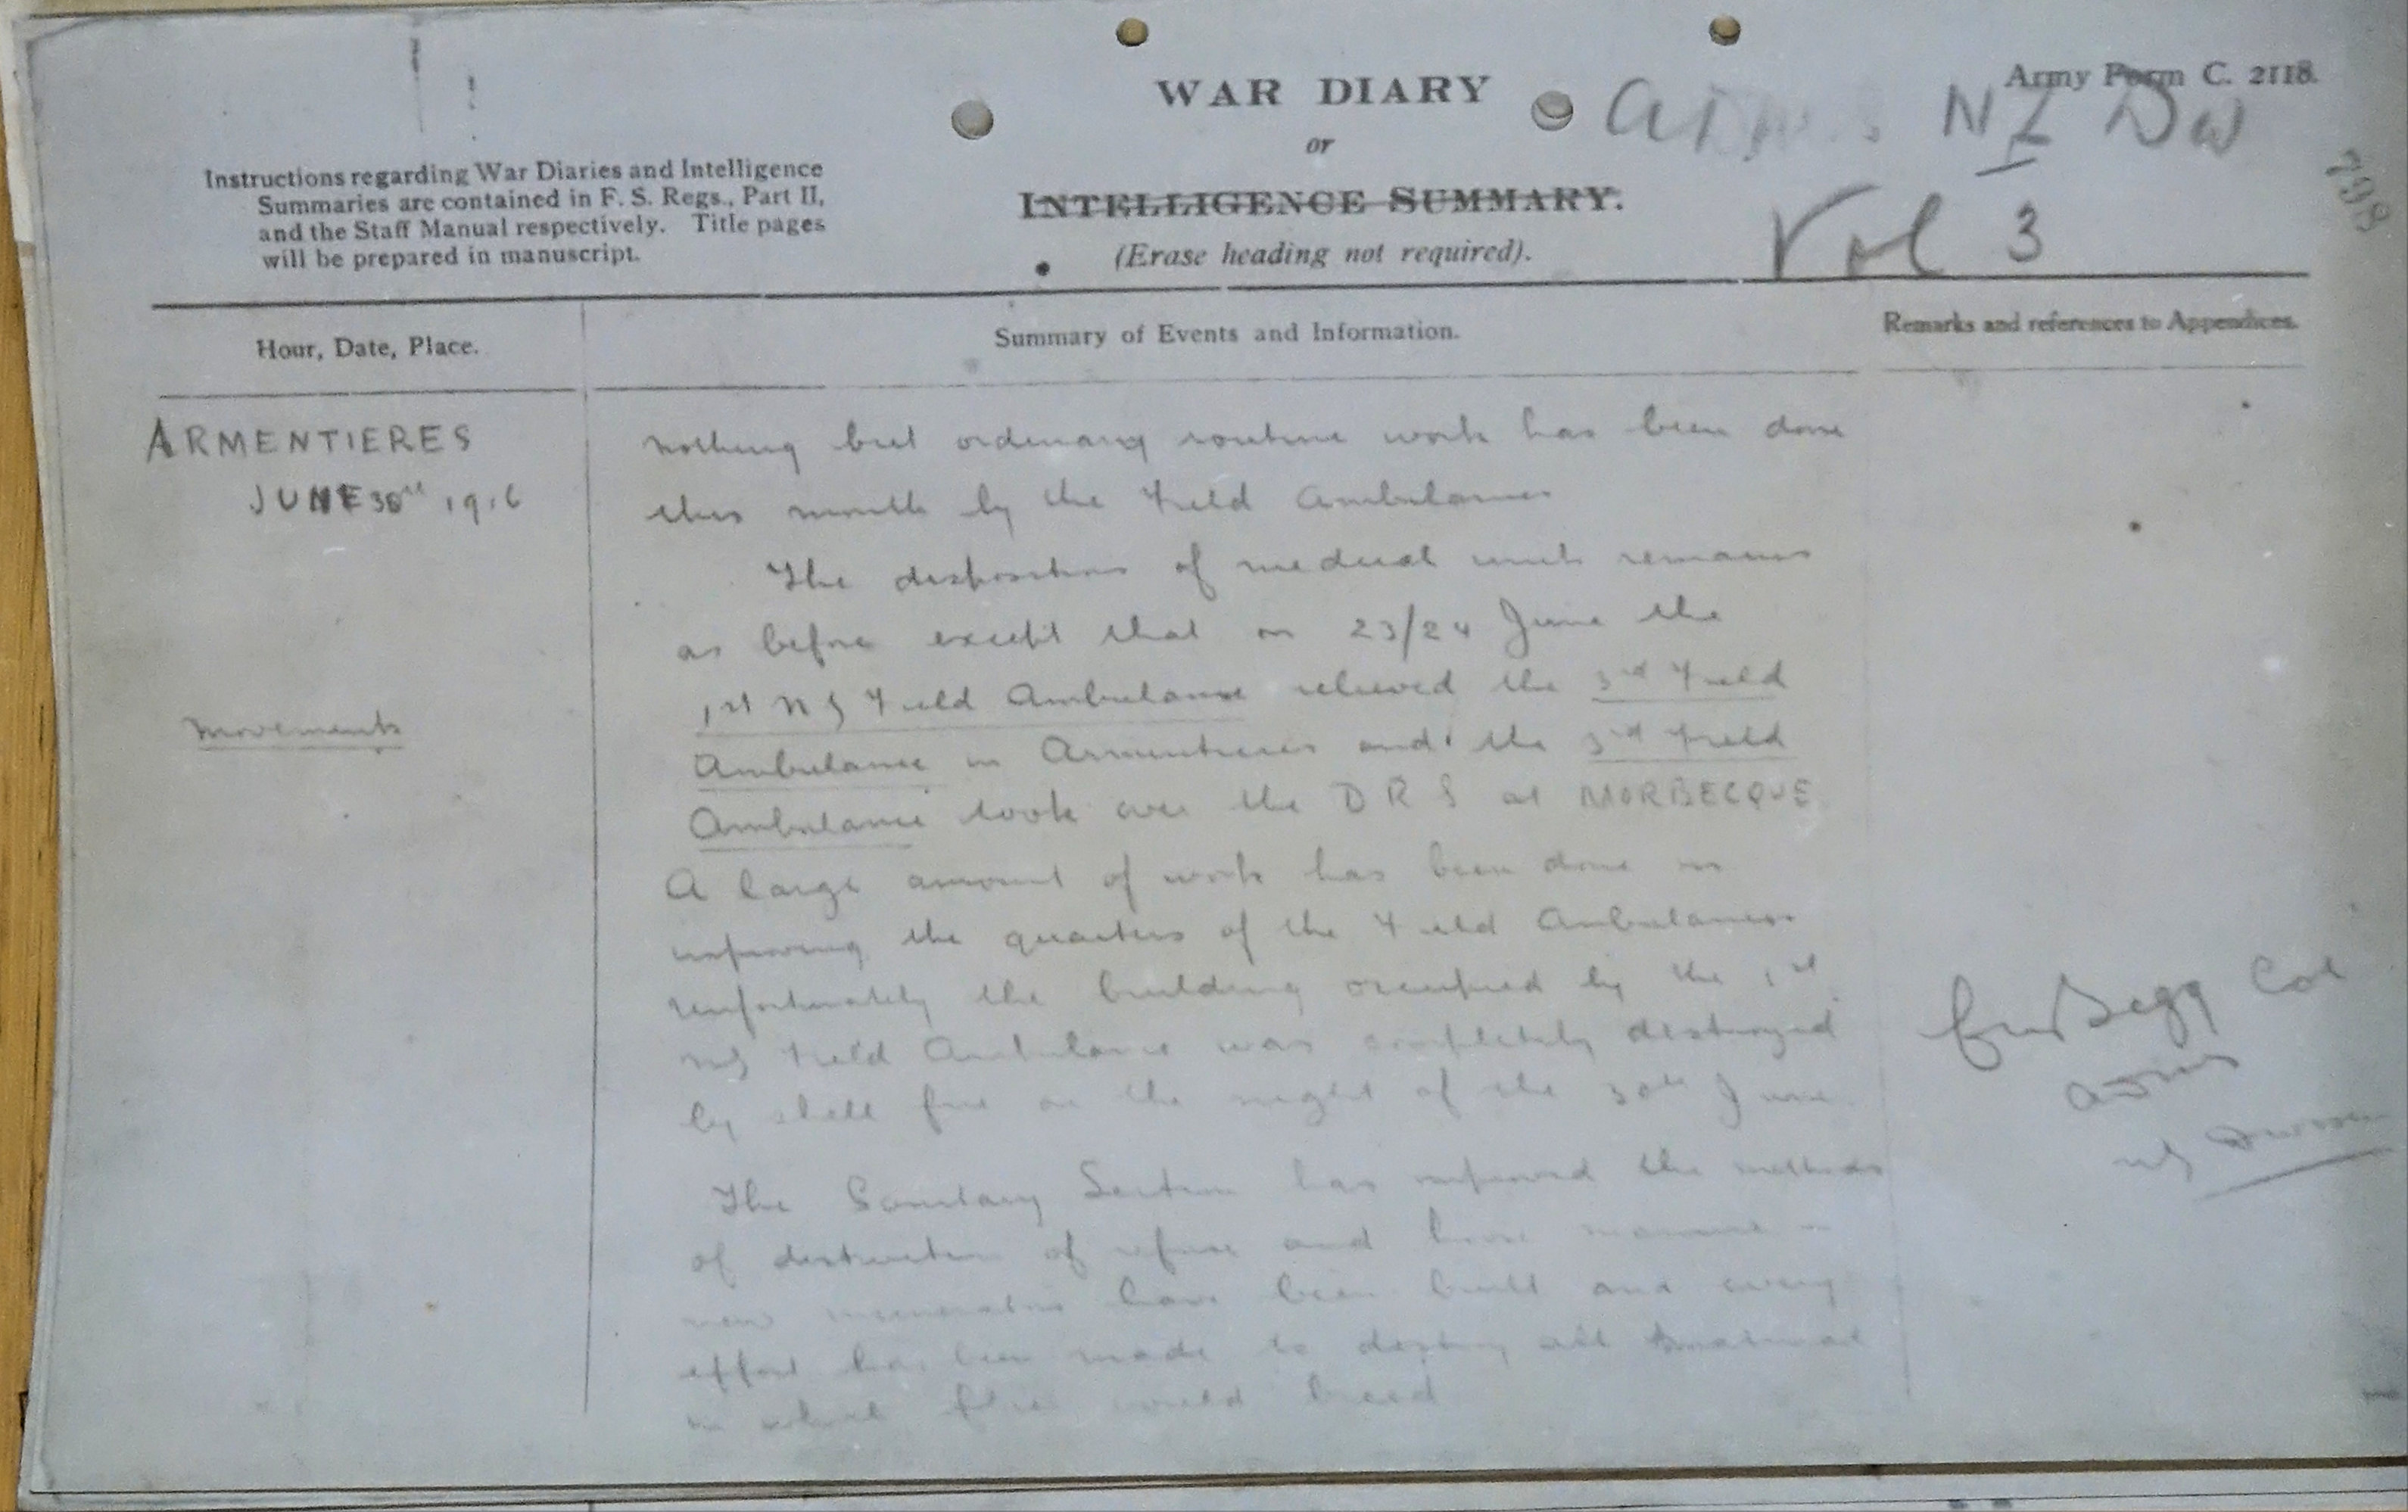 WAR DIARY
or
INTELLIGENCE SUMMARY.
(Erase heading not required).
Army Form C. 2118.
ADMS NZ Div
Vol 3
798
Instructions regarding War Diaries and Intelligence
Summaries are contained in F. S. Regs., Part II,
and the Staff Manual respectively. Title pages
will be prepared in manuscript.
Hour, Date, Place.
Summary of Events and Information.
Remarks and references to Appendices.
ARMENTIERES
JUNE 30th 1916
nothing but ordinary routine work has been done
this month by the Field Ambulances
The disposition of medical units remains
as before except that on 23/24 June the
Movements
1st NZ Field Ambulance relieved the 3rd Field
Ambulance in Armentieres and the 3rd Field
Ambulance took over the DRS at MORBECQUE
A large amount of work has been done in
improving the quarters of the Field Ambulances
unfortunately the building occupied by the 1st
NZ Field Ambulance was completely destroyed
by shell fire on the night of the 30th June
The Sanitary Section has improved the methods
of destruction of refuse and horse manure
new incinerators have been built and every
effort has been made to destroy all material
in which flies could breed
Begg Col
ADMS
NZ Division